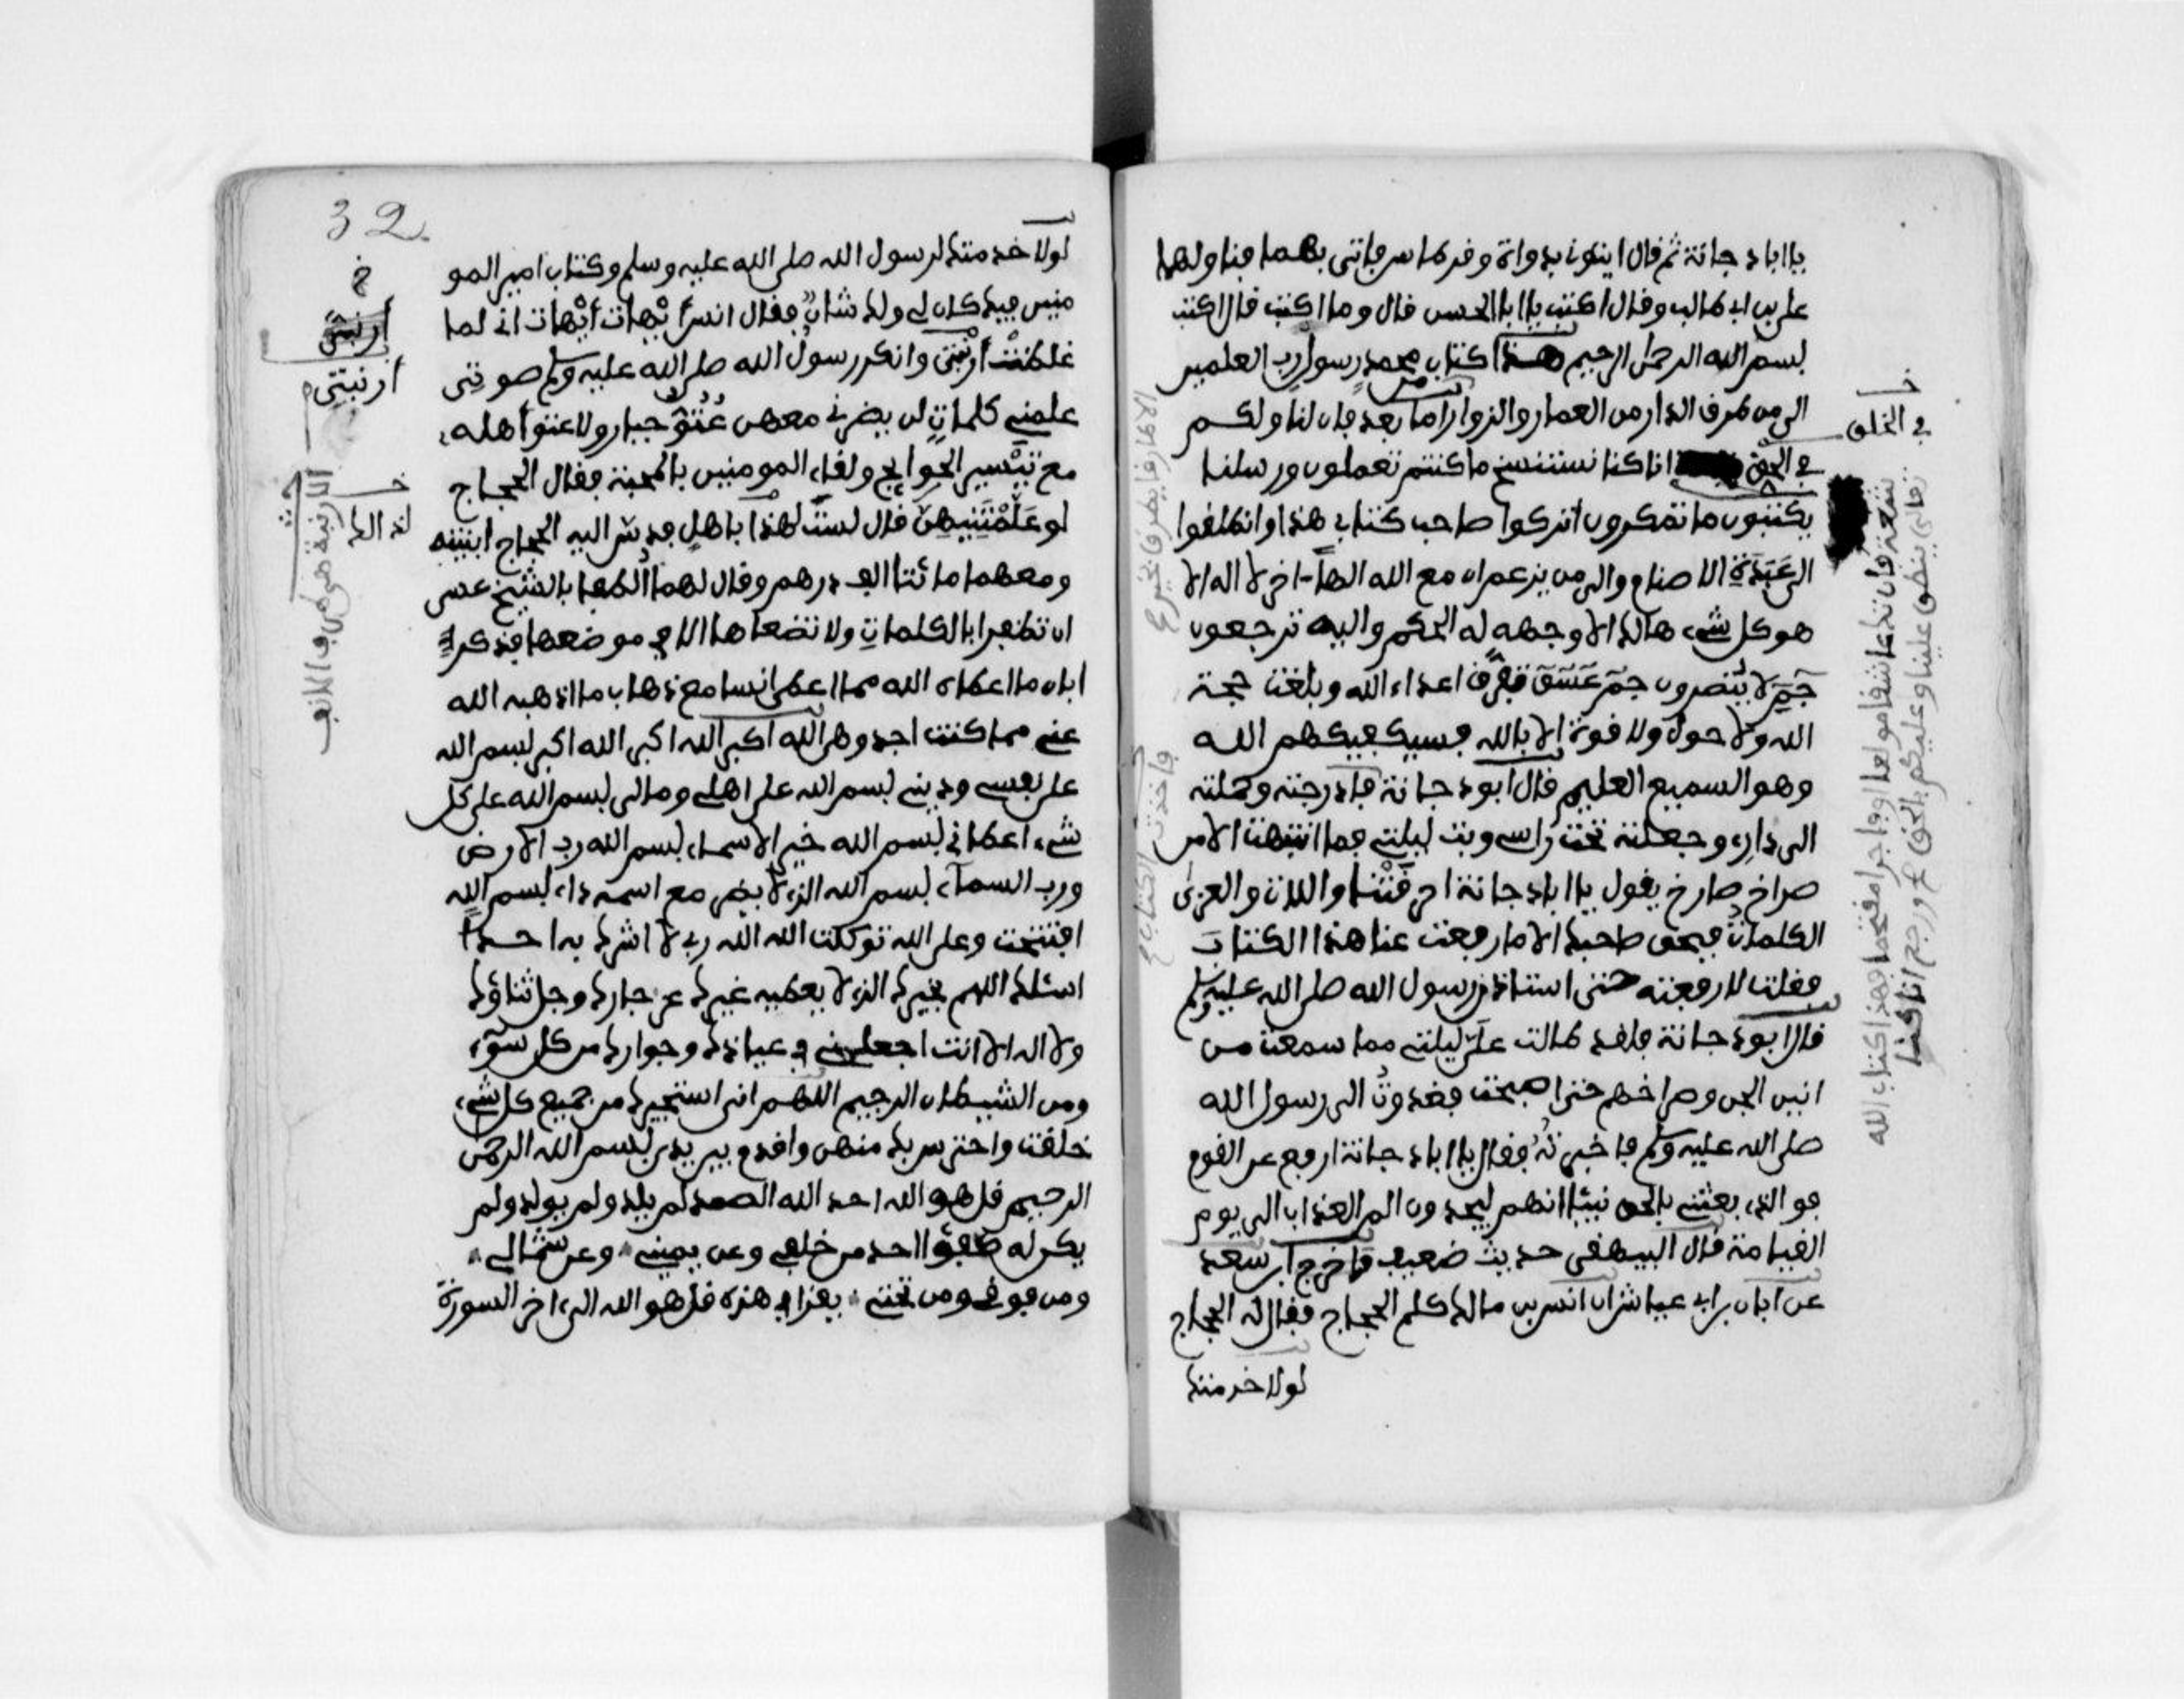 يا ابا دجانة ثم قال ايتوني بدواة وقرطاس فاتى بهما فناولهما
علي بن ابي طالب وقال اكتب يا ابا الحسن قال وما اكتب قال اكتب
بسم الله الرحمن الرحيم هذا كتاب محمد رسول رب العلمين
الى من طرق الدار من العمار والزوار اما بعد فان لنا ولكم
في الحق انا كنا نستنسخ ما كنتم تعملون ورسلنا
يكتبون ما تمكرون اتركوا صاحب كتابي هذا وانطلقوا
الى عَبَدَةِ الاصنام والى من يزعم ان مع الله الهاً اخر لا اله الا
هو كل شيء هالك الا وجهه له الحكم واليه ترجعون
حم لا ينصرون حم عسق تفرق اعداء الله وبلغت حجة
الله ولا حول ولا قوة الا بالله فسيكفيكهم الله
وهو السميع العليم قال ابو دجانة فادرجته وحملته
الى داري وجعلته تحت راسي وبت ليلتي فما انتبهت الا من
صراخ صارخ يقول يا ابا دجانة احرقتنا واللات والعزى
الكلمات فبحق صاحبك الا ما رفعت عنا هذا الكتاب
فقلت لا رفعته حتى استاذن رسول الله صلى الله عليه وسلم
قال ابو دجانة فلقد طالت علي ليلتي مما سمعت من
انين الجن وصراخهم حتى اصبحت فغدوت الى رسول الله
صلى الله عليه وسلم فاخبرته فقال يا ابا دجانة ارفع عن القوم
فو الذي بعثني بالحق نبيئا انهم ليجدون الم العذاب الى يوم
القيامة قال البيهقي حديث ضعيف واخرج ابن سعد
عن ابان بن ابي عياش ان انس بن مالك كلم الحجاج فقال له الحجاج
لولا خدمتك
في الخلق
سعة فان تك عاشقا مولعا او فاجرا مقتحما فهذا كتاب الله
تعالى ينطق علينا وعليكم بالحق
الا طارقا يطرق بخير
32
لولا خدمتك لرسول الله صلى الله عليه وسلم وكتاب امير المو
منين فيك كان لي ولك شان فقال انس أيهات أيهات اني لما
غلظت أرنبتي وانكر رسول الله صلى الله عليه وسلم صوتي
علمني كلمات لن يضرني معهن عتو جبار ولا عنوة اهله
مع تيسير الحوايج ولقاء المومنين بالمحبة فقال الحجاج
لو علمتنيهن قال لست لهذا باهل فدس اليه الحجاج ابنيه
ومعهما مائتا الف درهم وقال لهما الطفا بالشيخ عسى
ان تظفرا بالكلمات ولا تضعاها الا في موضعها فذكر لي
ابان ما اعطاه الله مما اعطى انسا مع ذهاب ما اذهبه الله
عني مما كنت اجد وهي الله اكبر الله اكبر الله اكبر بسم الله
على نفسي وديني بسم الله على اهلي ومالي بسم الله على كل
شيء اعطاني بسم الله خير الاسماء بسم الله رب الارض
ورب السماء بسم الله الذي لا يضر مع اسمه داء بسم الله
افتتحت وعلى الله توكلت الله الله ربي لا اشرك به احدا
اسئلك اللهم بخيرك الذي لا يعطيه غيرك عز جارك وجل ثناؤك
ولا اله الا انت اجعلني في عياذك وجوارك من كل سوء
ومن الشيطان الرجيم اللهم اني استجيرك من جميع كل شيء
خلقت واحترس بك منهن واقدم بين يدي بسم الله الرحمن
الرحيم قل هو الله احد الله الصمد لم يلد ولم يولد ولم
يكن له كفؤا احد من خلفي وعن يميني وعن شمالي
ومن فوقي ومن تحتي يقرا في هذه قل هو الله الى اخر السورة
خ
أرنبتي
أرنبتي
الارنبة هي طرف الانف